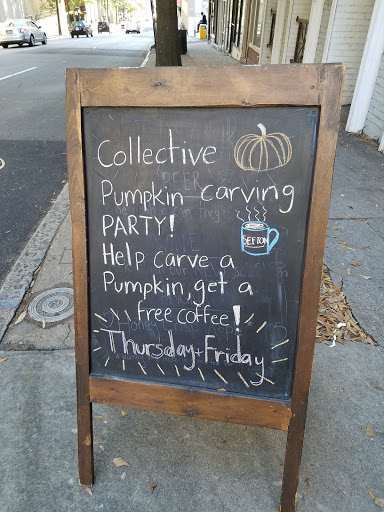 Collective
Pumpkin carving
PARTY!
SEFTON
Help carve a
Pumpkin, get a
free coffee!
Thursday + Friday